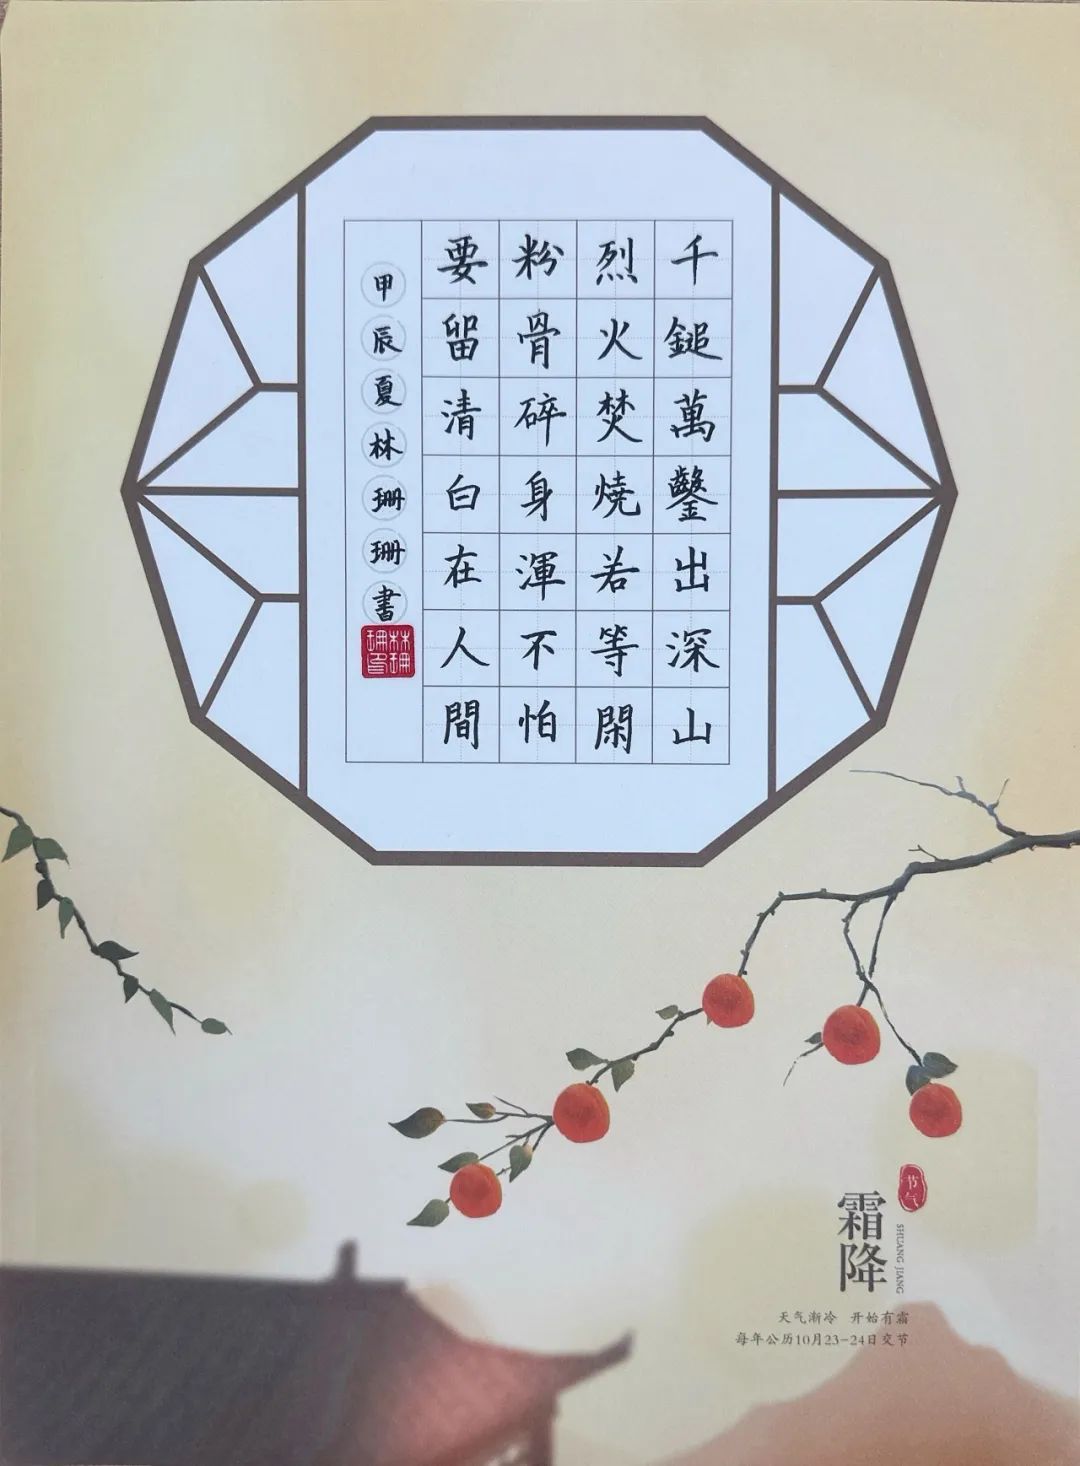 千鎚萬鑿出深山
烈火焚燒若等閑
粉骨碎身渾不怕
要留清白在人間
甲辰夏林珊珊書
林珊珊印
节气
霜降
SHUANG JIANG
天气渐冷 开始有霜
每年公历10月23-24日交节